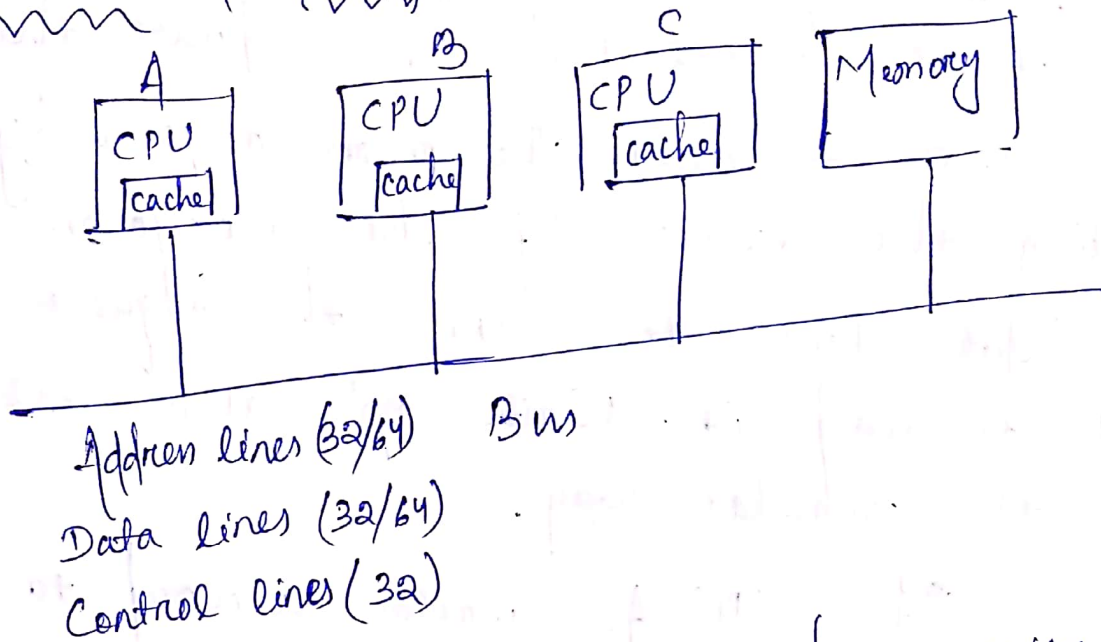 A
B
C
CPU
cache
CPU
cache
CPU
cache
Memory
Address lines (32/64) Bus
Data lines (32/64)
Control lines (32)